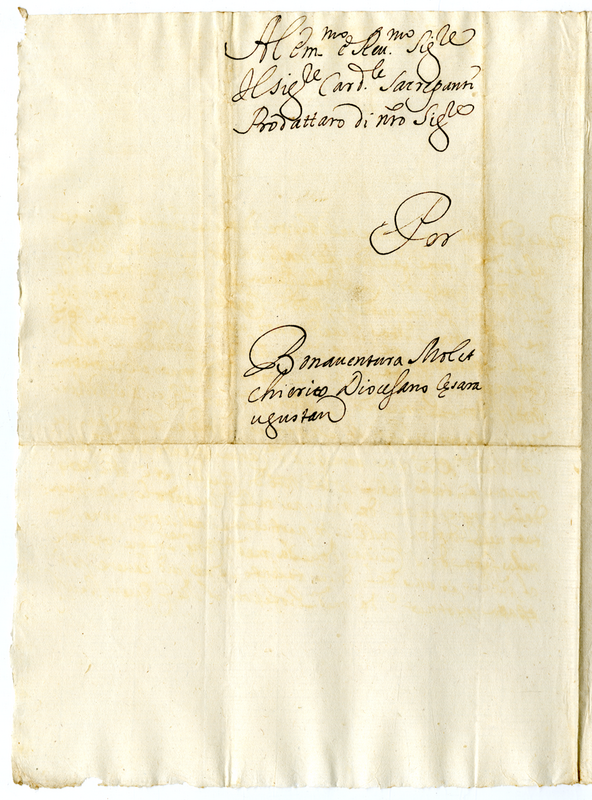 Al Em.mo e Reu.mo Sig.re
Il sig.re Card.le Sacripanti
Prodattaro di nro Sig.re
Per
Bonauentura Molet
chierico Diocesano Cęsara
ugustan